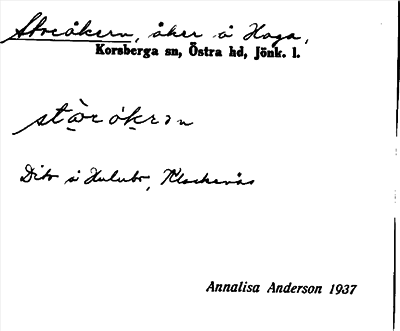 Storåkern, åker å Haga,
Korsberga sn, Östra hd, Jönk. l.
Dito å Hulubr, Klockarås
Annalisa Anderson 1937